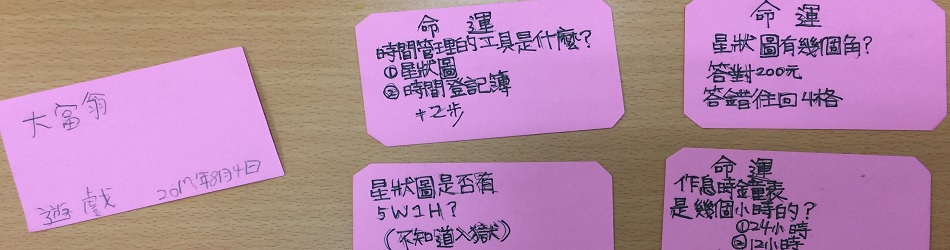 大富翁
遊戲
2017年8月4日
命運
時間管理的工具是什麼?
①星狀圖
②時間登記簿
+2步
命運
星狀圖有幾個角?
答對200元
答錯往回4格
星狀圖是否有
5W1H?
(不知道入獄)
命運
作息時鐘表
是幾個小時的?
①24小時
②12小時